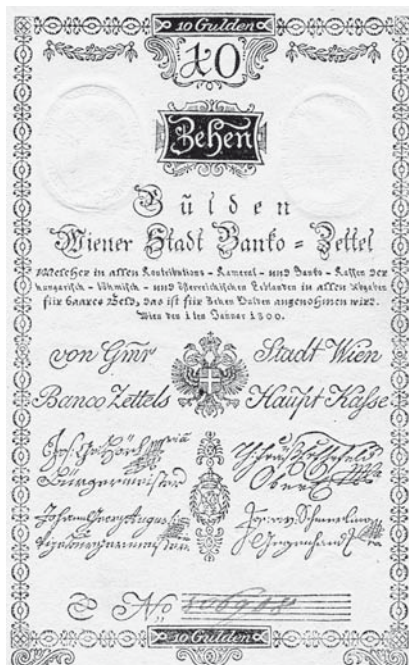 10 Gulden
10
Zehen
Gulden
Wiener Stadt Banko = Zettel
Welcher in allen Kontributions - Kameral - und Banko - Kassen der
hungarisch - böhmisch - und österreichischen Erblanden in allen Abgaben
für baares Geld, das ist für Zehen Gulden angenommen wird.
Wien den 1ten Januar 1800.
von Gmr Stadt Wien
Banco Zettels Haupt Kasse
Bürgermeister Ober
Johann Georg Augusti
No
10 Gulden